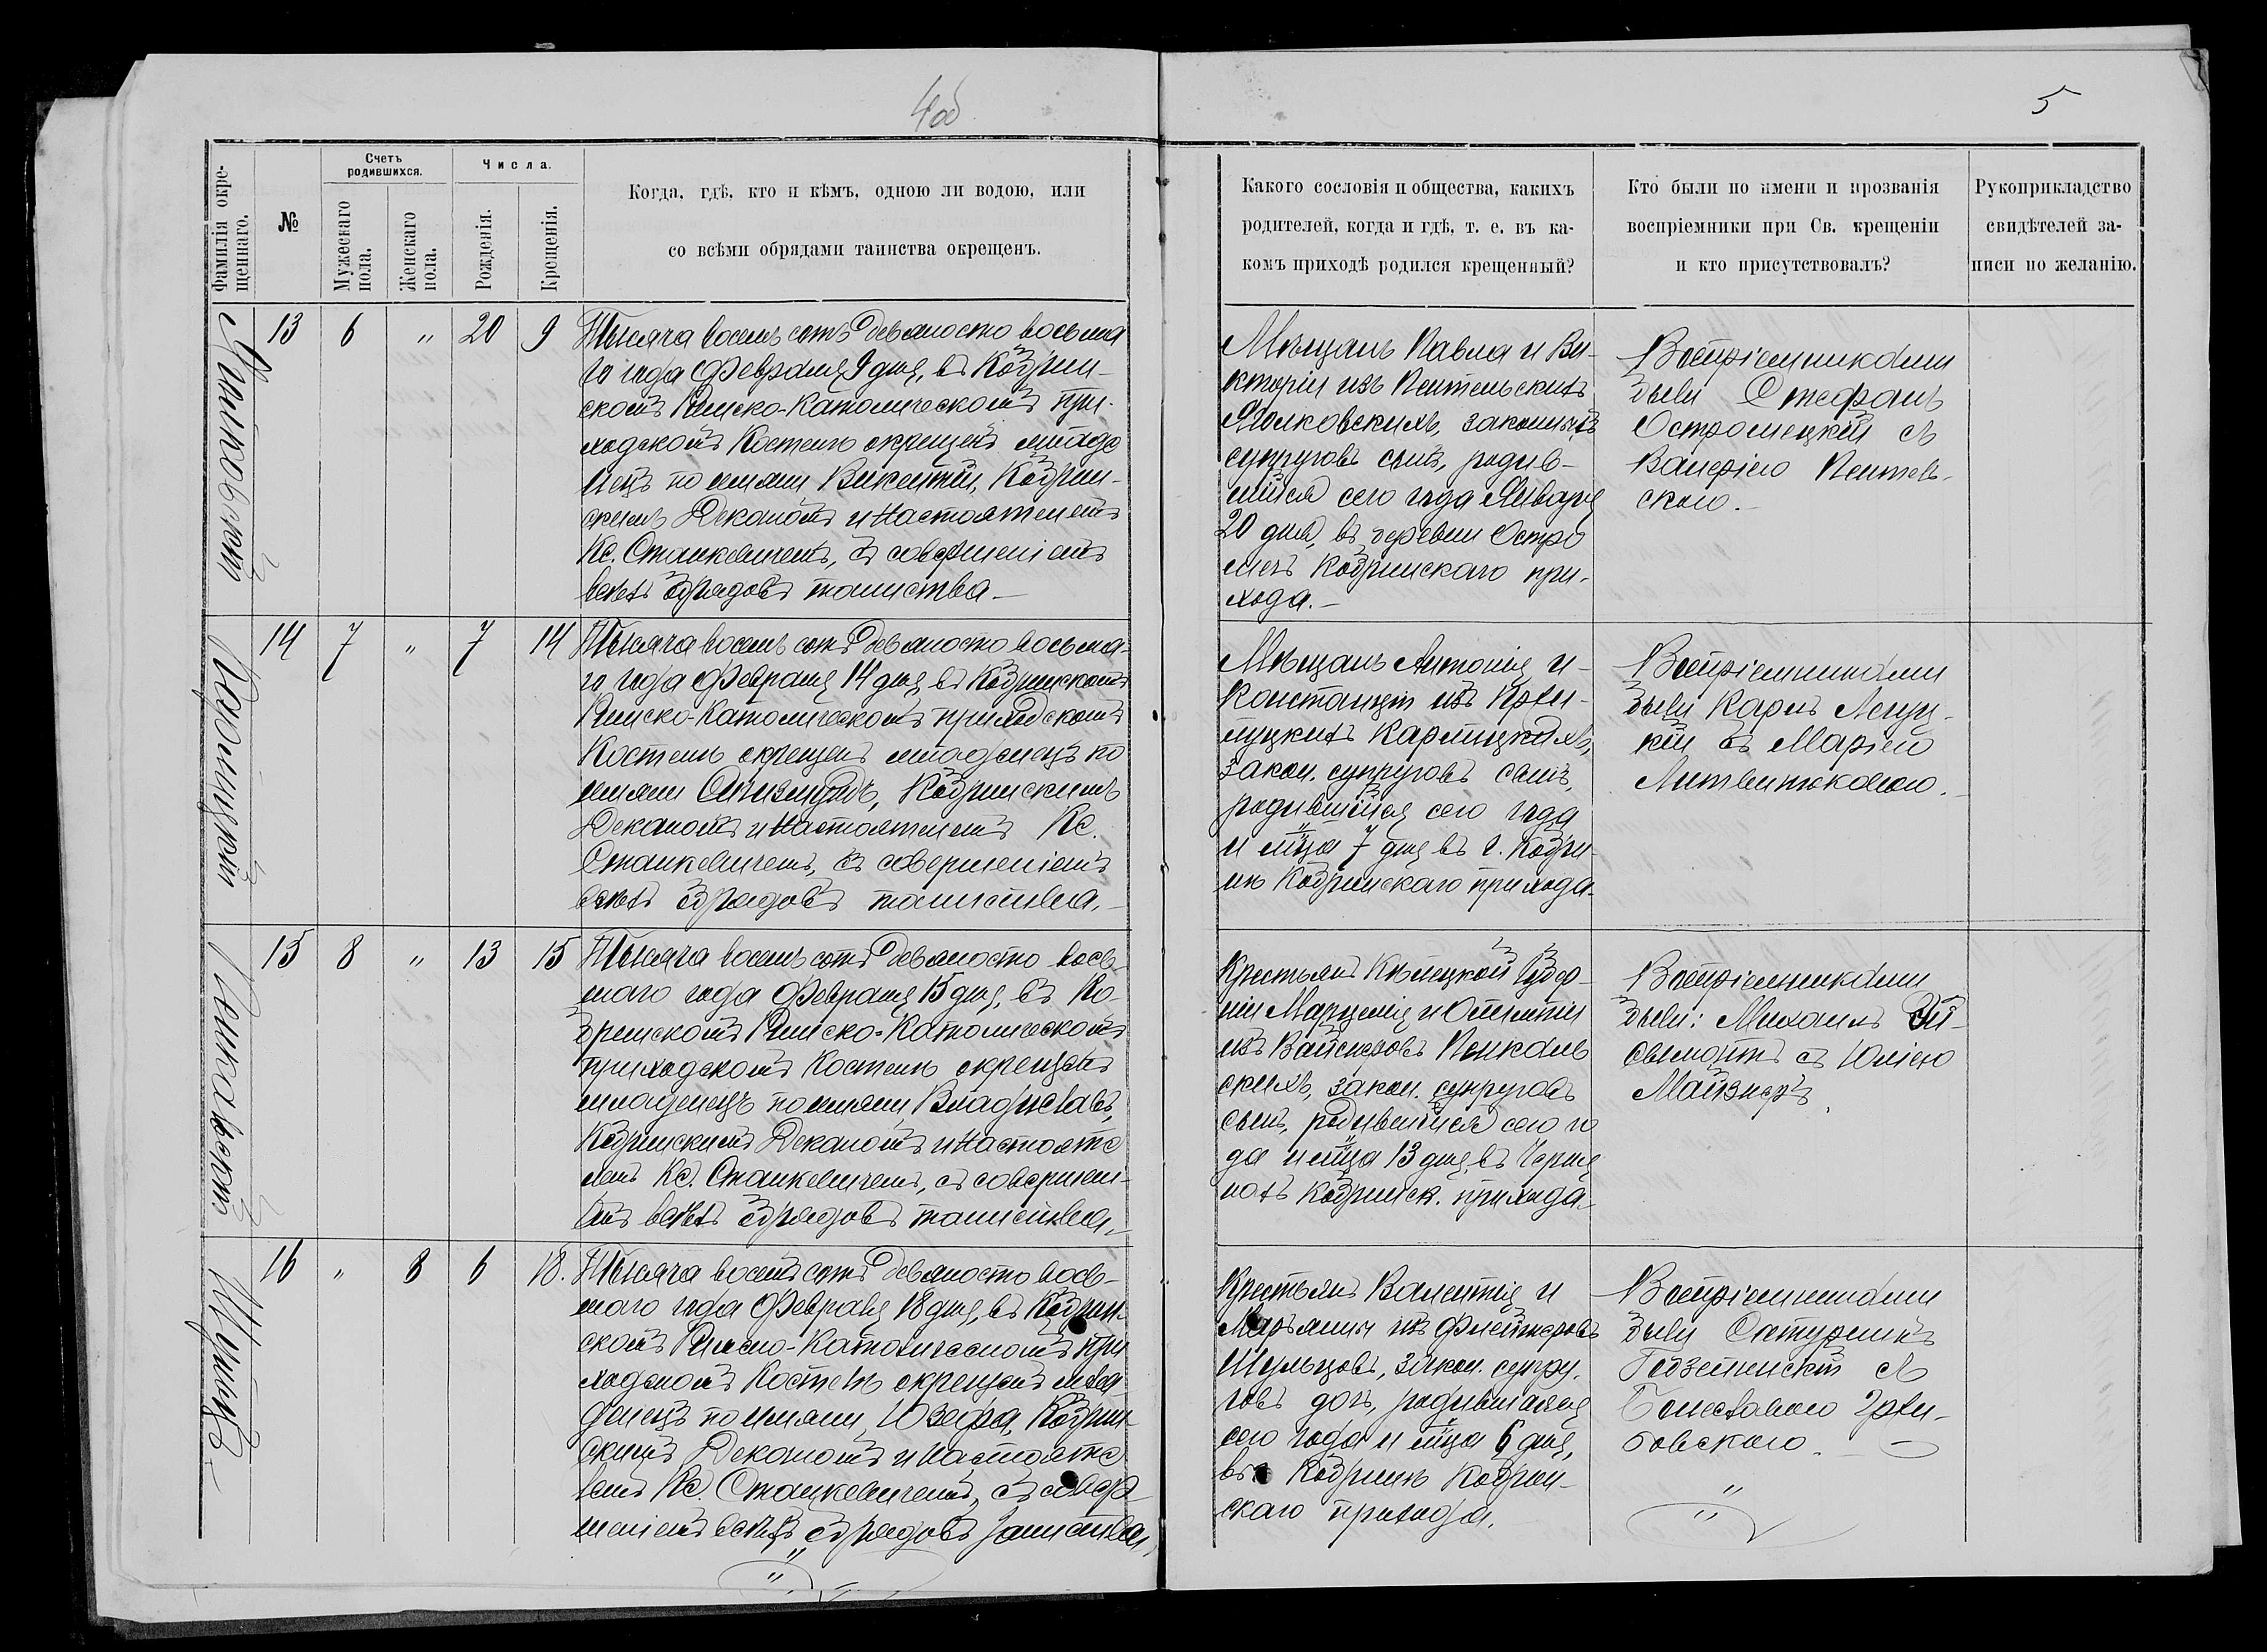 4об
5
Фамилія окре-
щеннаго.
№
Счетъ
родившихся.
Мужескаго
пола.
Женскаго
пола.
Числа.
Рожденія.
Крещенія.
Когда, гдѣ, кто и кѣмъ, одною ли водою, или
со всѣми обрядами таинства окрещенъ.
Какого сословія и общества, какихъ
родителей, когда и гдѣ, т. е. въ ка-
комъ приходѣ родился крещенный?
Кто были по имени и прозванія
воспріемники при Св. крещеніи
и кто присутствовалъ?
Рукоприкладство
свидѣтелей за-
писи по желанію.
13 6 " 20 9
Тысяча восемь сотъ девяносто восьма
го года Февраля 9 дня, въ Кобрин-
скомъ Римско-Католическомъ при-
ходскомъ Костелѣ окрещенъ младе
нецъ по имени Викентій, Кобрин-
скимъ Деканомъ и Настоятелемъ
Кс. Станкевичемъ, съ совершеніемъ
всѣхъ обрядовъ таинства.-
Мѣщанъ Павла и Ви-
кторіи изъ Пентельскихъ
законныхъ
супруговъ сынъ, родив-
шійся сего года Января
20 дня, въ деревни Остро
мечъ Кобринскаго при-
хода.-
Воспріемниками
были Стефанъ
Остромецкій съ
Валеріею Пентель-
скою.-
14 7 " 7 14
Карпицкій
Тысяча восемь сотъ девяносто восьма-
го года Февраля 14 дня въ Кобринскомъ
Римско-Католическомъ приходскомъ
Костелѣ окрещенъ младенецъ по
имени Сигизмундъ, Кобринскимъ
Деканомъ и Настоятелемъ Кс.
Станкевичемъ, съ совершеніемъ
всѣхъ обрядовъ таинства.-
Мѣщанъ Антонія и
Констанціи изъ
Карпицкихъ,
закон. супруговъ сынъ,
родившійся сего года
и м̃ца 7 дня въ г. Кобри-
нѣ Кобринскаго прихода.
Воспріемниками
были Карлъ
кій съ Маріею
Литвинковою.
15 8 " 13 15
Пеньковскій
Тысяча восемь сотъ девяносто вось-
маго года Февраля 15 дня, въ Ко-
бринскомъ Римско-Католическомъ
приходскомъ Костелѣ окрещенъ
младенецъ по имени Владиславъ,
Кобринскимъ Деканомъ и Настояте
лемъ Кс. Станкевичемъ, съ совершені-
емъ всѣхъ обрядовъ таинства.-
Крестьянъ Кѣлецкой Губер-
ніи Марцелія и
изъ Вайснеровъ Пенков
скихъ, закон. супруговъ
сынъ, родившійся сего го
да и м̃ца 13 дня, въ Черня
нахъ Кобринск. прихода.
Воспріемниками
были: Михаилъ Эй-
съ Юліею
Майзнеръ.
16 " 8 6 18.
Шульцъ.-
Тысяча восемь сотъ девяносто вось-
маго года Февраля 18 дня, въ Кобрин-
скомъ Римско-Католическомъ при
ходскомъ Костелѣ окрещенъ мла
денецъ по имени Юзефа, Кобрин-
скимъ Деканомъ и Настояте
лемъ Кс. Станкевичемъ, съ совер-
шеніемъ всѣхъ обрядовъ таинства.
Крестьянъ Валентія и
Маріанны изъ
Шульцовъ, закон. супру-
говъ дочь, родившаяся
сего года и м̃ца 6 дня,
въ Кобринѣ Кобрин-
скаго прихода.
Воспріемниками
были Сатурнинъ
съ
Болеславою
бовскою.